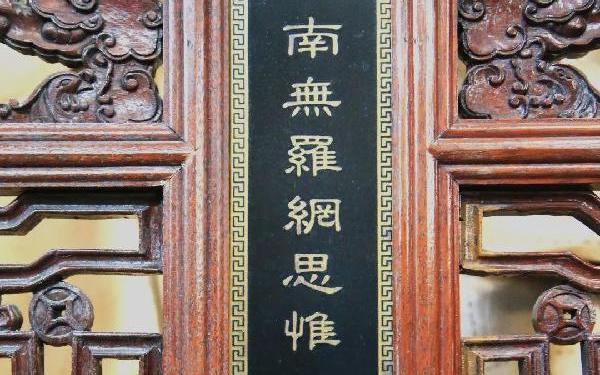 南無羅網思惟